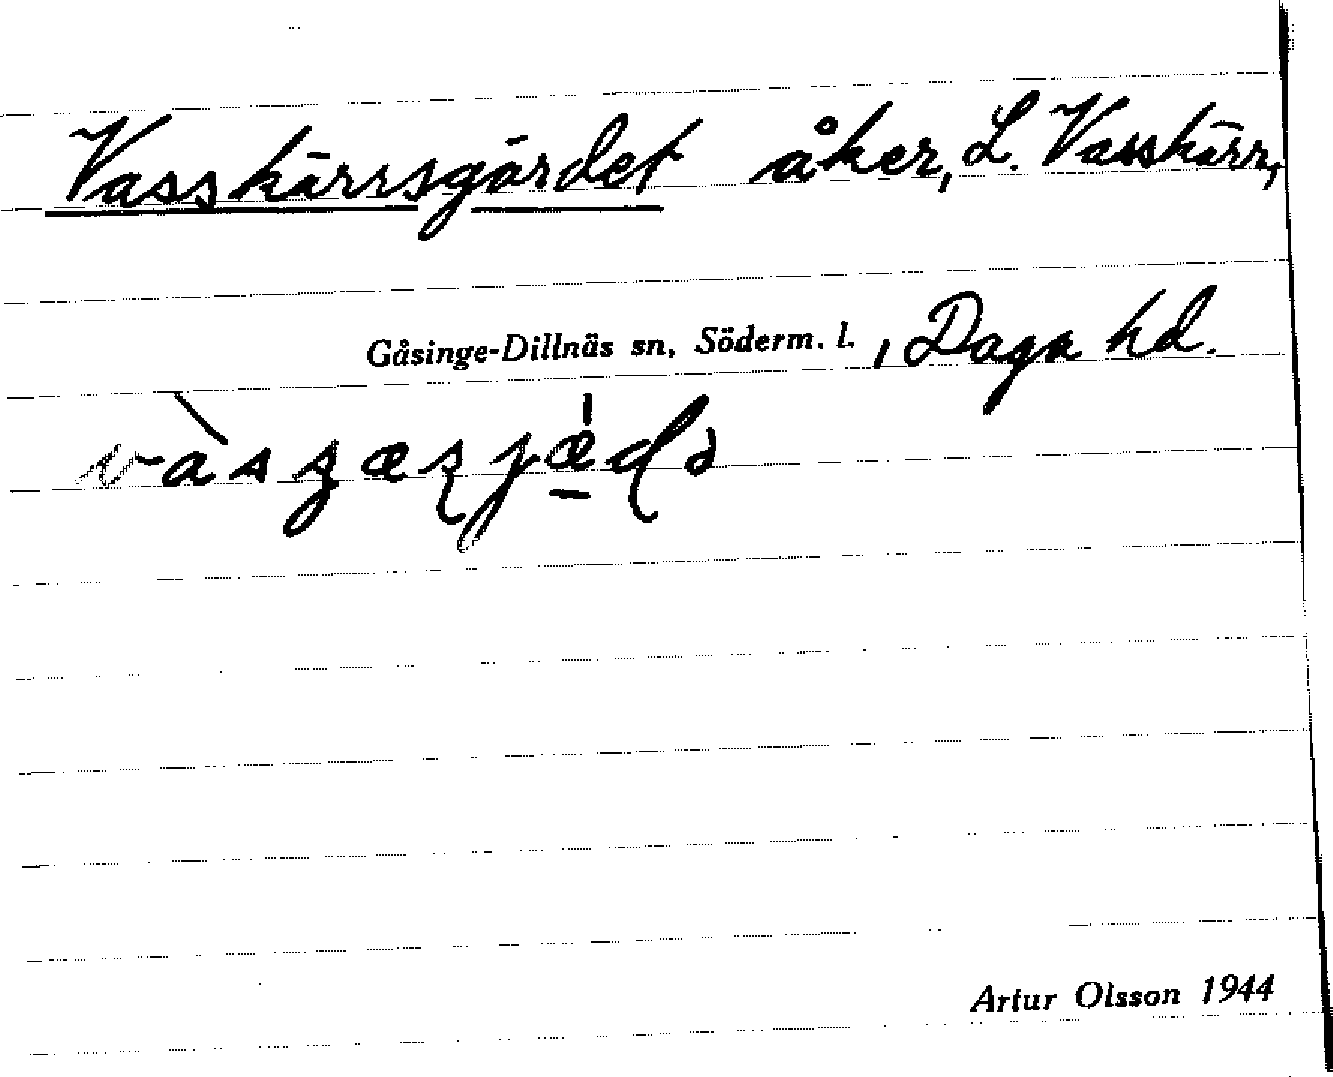 Vasskärrsgärdet åker, L. Vasskärr,
Gåsinge-Dillnäs sn, Söderm. l., Daga hd.
Artur Olsson 1944